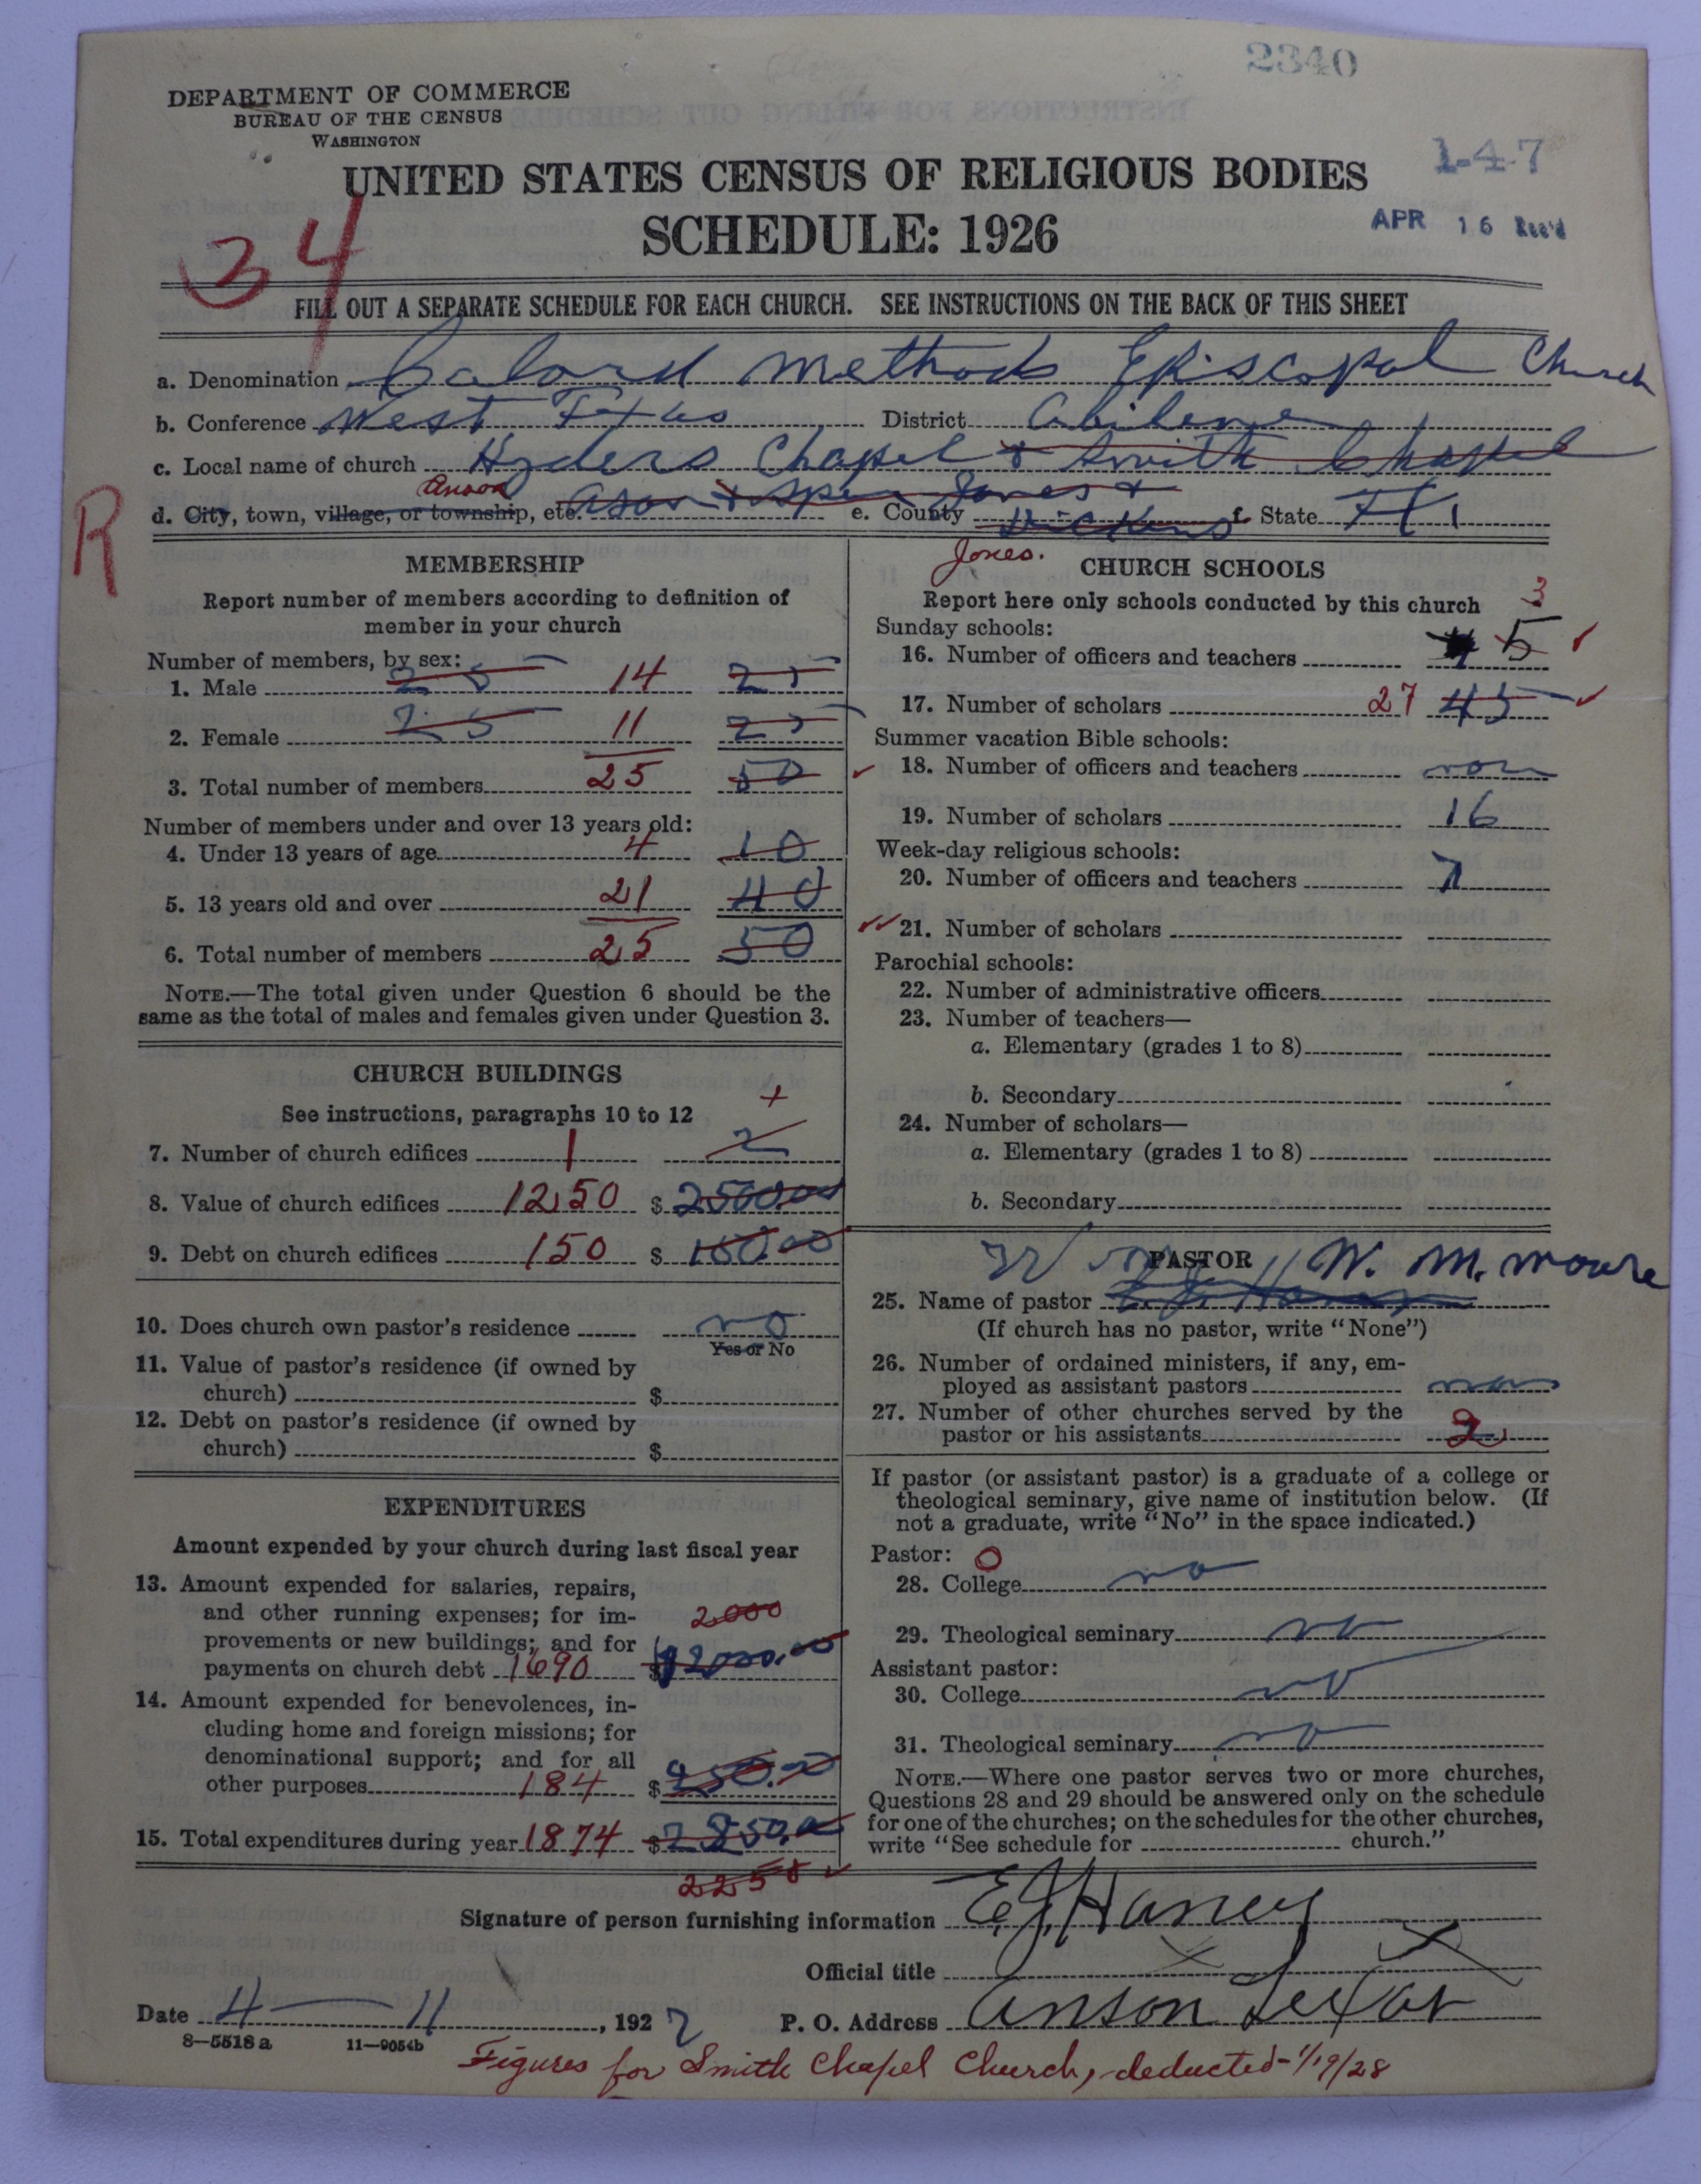 2340
DEPARTMENT OF COMMERCE
BUREAU OF THE CENSUS
WASHINGTON
1-4-7
UNITED STATES CENSUS OF RELIGIOUS BODIES
SCHEDULE: 1926
APR 16 Rec'd
34
FILL OUT A SEPARATE SCHEDULE FOR EACH CHURCH. SEE INSTRUCTIONS ON THE BACK OF THIS SHEET
a. Denomination Calord Methods Episcopal Church
b. Conference West Texas District Abilene
c. Local name of church Hyders Chapel & Smith Chapel
Anson
d. City, town, village, or township, etc. Ason & Spur e. County Jones & Dickens f. State
R
Jones.
MEMBERSHIP
Report number of members according to definition of
member in your church
Number of members, by sex:
1. Male 25 14 25
2. Female 25 11 25
3. Total number of members 25 50
Number of members under and over 13 years old:
4. Under 13 years of age 4 10
5. 13 years old and over 21 40
6. Total number of members 25 50
NOTE.—The total given under Question 6 should be the
same as the total of males and females given under Question 3.
CHURCH BUILDINGS
See instructions, paragraphs 10 to 12
7. Number of church edifices 1 2
8. Value of church edifices 1250 $ 2500.00
9. Debt on church edifices 150 $ 150.00
10. Does church own pastor's residence no
Yes or No
11. Value of pastor's residence (if owned by
church) $
12. Debt on pastor's residence (if owned by
church) $
EXPENDITURES
Amount expended by your church during last fiscal year
13. Amount expended for salaries, repairs,
and other running expenses; for im- 2000
provements or new buildings; and for
payments on church debt 1690 $ 2000.00
14. Amount expended for benevolences, in-
cluding home and foreign missions; for
denominational support; and for all
other purposes 184 $ 250.00
15. Total expenditures during year 1874 $ 2850.00
2250
CHURCH SCHOOLS
Report here only schools conducted by this church
3
Sunday schools:
16. Number of officers and teachers 5
17. Number of scholars 27 45
Summer vacation Bible schools:
18. Number of officers and teachers non
19. Number of scholars 16
Week-day religious schools:
20. Number of officers and teachers 7
21. Number of scholars
Parochial schools:
22. Number of administrative officers
23. Number of teachers—
a. Elementary (grades 1 to 8)
b. Secondary
24. Number of scholars—
a. Elementary (grades 1 to 8)
b. Secondary
PASTOR
W. M. Moore
25. Name of pastor
(If church has no pastor, write "None")
26. Number of ordained ministers, if any, em-
ployed as assistant pastors non
27. Number of other churches served by the
pastor or his assistants 2
If pastor (or assistant pastor) is a graduate of a college or
theological seminary, give name of institution below. (If
not a graduate, write "No" in the space indicated.)
Pastor: 0
28. College no
29. Theological seminary no
Assistant pastor:
30. College no
31. Theological seminary no
NOTE.—Where one pastor serves two or more churches,
Questions 28 and 29 should be answered only on the schedule
for one of the churches; on the schedules for the other churches,
write "See schedule for church."
Signature of person furnishing information E. J. Haney
Official title
Date 4—11, 1927 P. O. Address Anson Texas
8—5518 a 11—9054b
Figures for Smith Chapel Church, deducted- 1/19/28